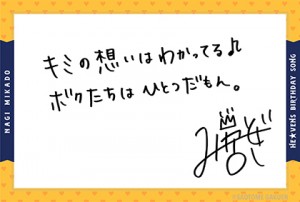 キミの想いはわかってる♪
ボクたちはひとつだもん。
NAGI MIKADO
HE★VENS BIRTHDAY SONG